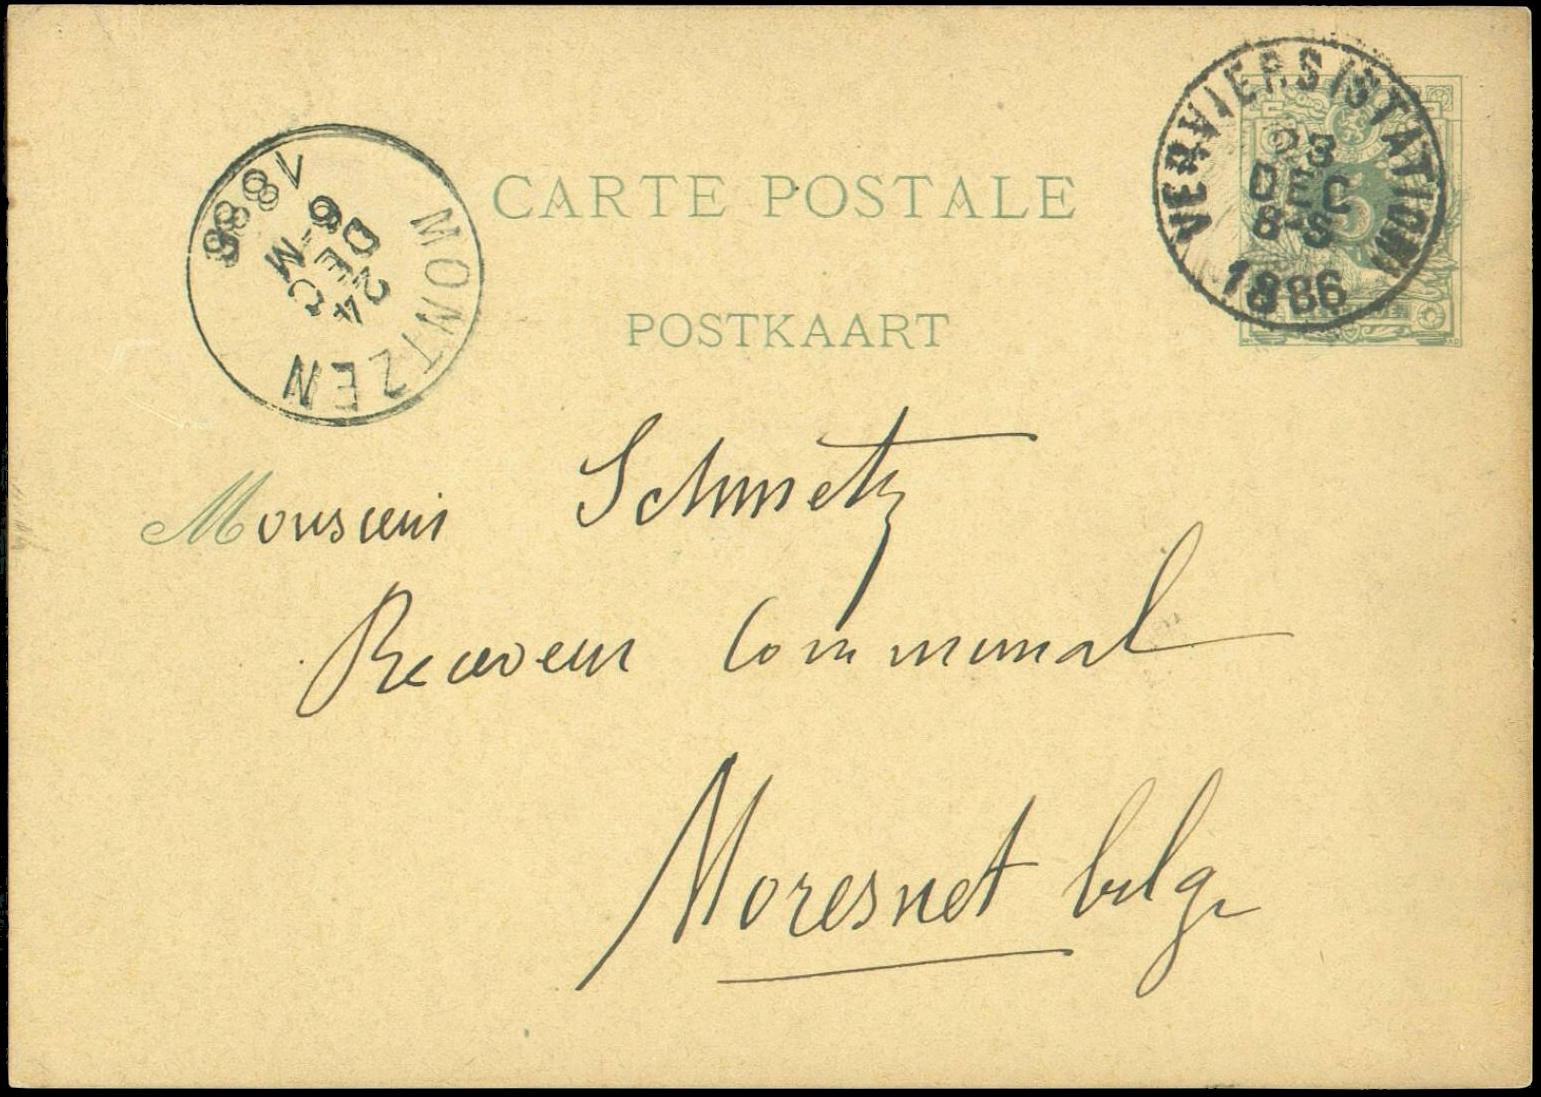 CARTE POSTALE
POSTKAART
VERVIERS (STATION)
23
DEC
8-S
1886
MONTZEN
24 DE
6 M
Monsieur Schmetz
Receveur Communal
Moresnet belge